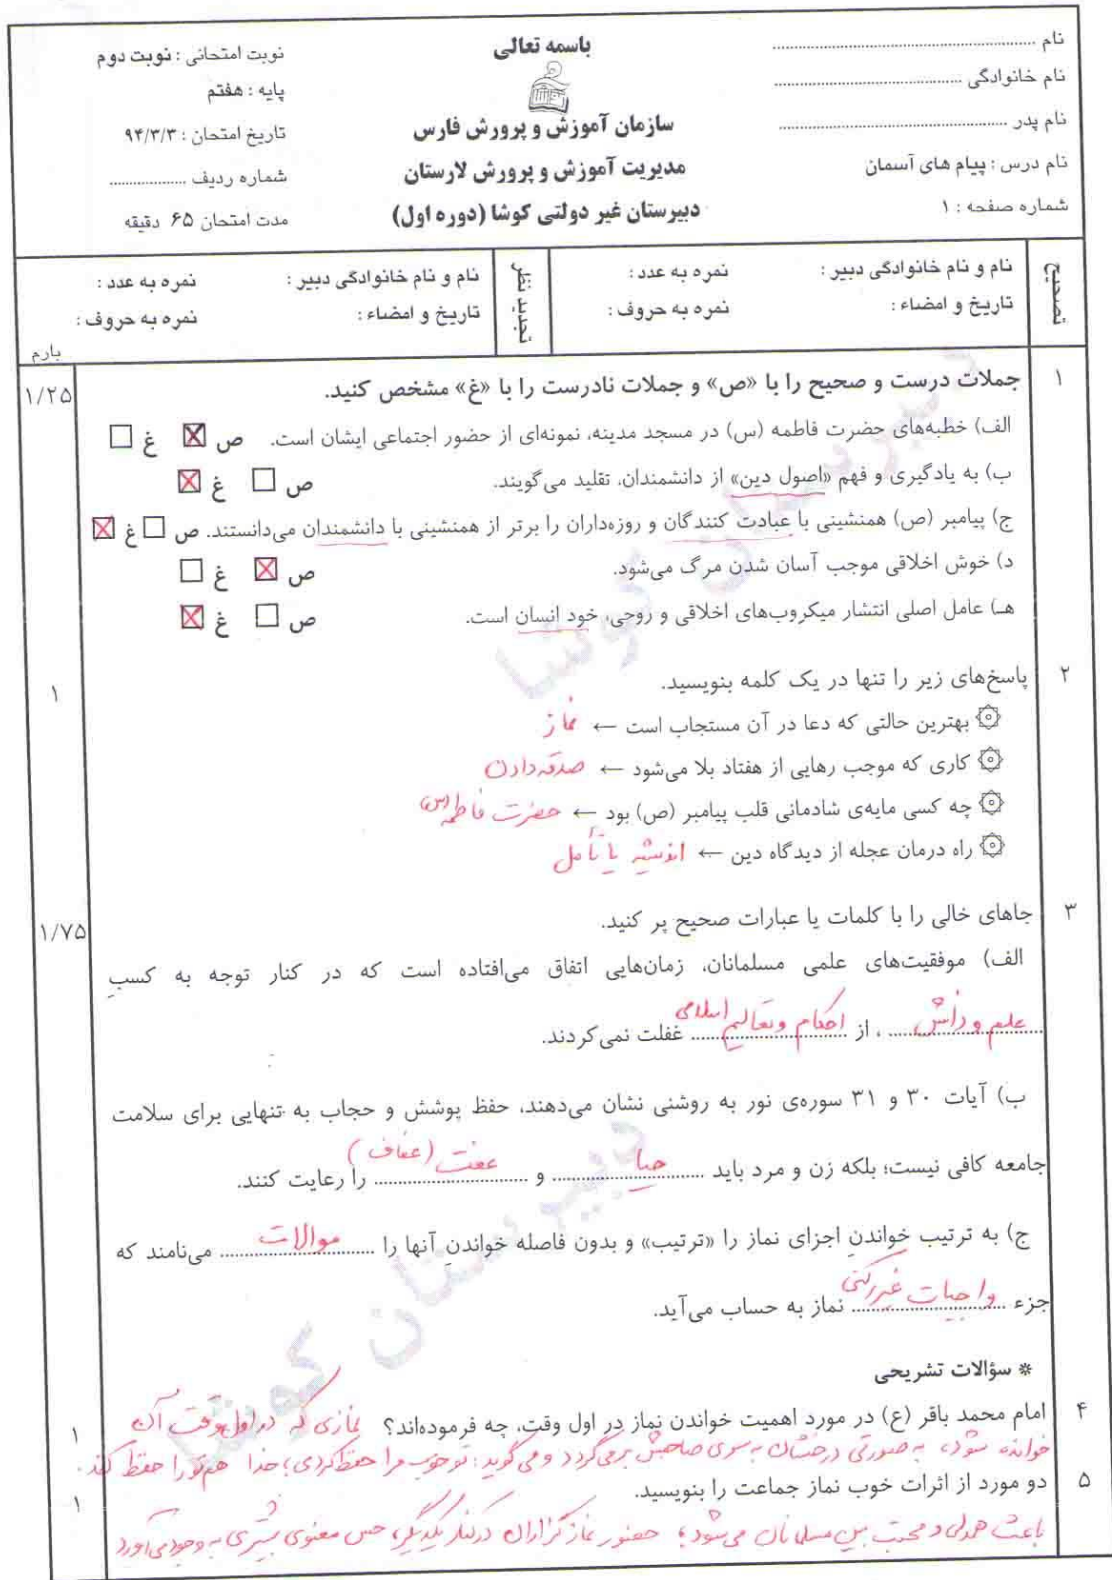 باسمه تعالی
نام ........................
نام خانوادگی ........................
نام پدر ........................
نام درس : پیام های آسمان
شماره صفحه : ۱
سازمان آموزش و پرورش فارس
مدیریت آموزش و پرورش لارستان
دبیرستان غیر دولتی کوشا (دوره اول)
نوبت امتحانی : نوبت دوم
پایه : هفتم
تاریخ امتحان : ۹۴/۳/۳
شماره ردیف ..................
مدت امتحان ۶۵ دقیقه
تصحیح
نام و نام خانوادگی دبیر : نمره به عدد :
تاریخ و امضاء : نمره به حروف :
تجدید نظر
نام و نام خانوادگی دبیر : نمره به عدد :
تاریخ و امضاء : نمره به حروف :
بارم
۱ جملات درست و صحیح را با «ص» و جملات نادرست را با «غ» مشخص کنید. ۱/۲۵
الف) خطبه‌های حضرت فاطمه (س) در مسجد مدینه، نمونه‌ای از حضور اجتماعی ایشان است. ص ☒ غ ☐
ب) به یادگیری و فهم «اصول دین» از دانشمندان، تقلید می‌گویند. ص ☐ غ ☒
ج) پیامبر (ص) همنشینی با عبادت کنندگان و روزه‌داران را برتر از همنشینی با دانشمندان می‌دانستند. ص ☐ غ ☒
د) خوش اخلاقی موجب آسان شدن مرگ می‌شود. ص ☒ غ ☐
هـ) عامل اصلی انتشار میکروب‌های اخلاقی و روحی، خود انسان است. ص ☐ غ ☒
۲ پاسخ‌های زیر را تنها در یک کلمه بنویسید. ۱
بهترین حالتی که دعا در آن مستجاب است ← نماز
کاری که موجب رهایی از هفتاد بلا می‌شود ← صدقه دادن
چه کسی مایه‌ی شادمانی قلب پیامبر (ص) بود ← حضرت فاطمه (س)
راه درمان عجله از دیدگاه دین ← اندیشه یا تأمل
۳ جاهای خالی را با کلمات یا عبارات صحیح پر کنید. ۱/۷۵
الف) موفقیت‌های علمی مسلمانان، زمان‌هایی اتفاق می‌افتاده است که در کنار توجه به کسبِ
علم و دانش ، از احکام و تعالیم اسلامی غفلت نمی‌کردند.
ب) آیات ۳۰ و ۳۱ سوره‌ی نور به روشنی نشان می‌دهند، حفظ پوشش و حجاب به تنهایی برای سلامت
جامعه کافی نیست؛ بلکه زن و مرد باید حیا و عفت (عفاف) را رعایت کنند.
ج) به ترتیب خواندنِ اجزای نماز را «ترتیب» و بدون فاصله خواندنِ آنها را موالات می‌نامند که
جزء واجبات غیررکنی نماز به حساب می‌آید.
* سؤالات تشریحی
۴ امام محمد باقر (ع) در مورد اهمیت خواندن نماز در اول وقت، چه فرموده‌اند؟ نمازی که در اول وقت آن ۱
خوانده شود، به صورتی درخشان به سوی صاحبش برمی‌گردد و می‌گوید: تو خوب مرا حفظ کردی؛ خدا هم تو را حفظ کند.
۵ دو مورد از اثرات خوب نماز جماعت را بنویسید. ۱
باعث همدلی و محبت بین مسلمانان می‌شود؛ حضور نمازگزاران در کنار یکدیگر، حس معنوی بیشتری به وجود می‌آورد
دبیرستان کوشا
دبیرستان کوشا